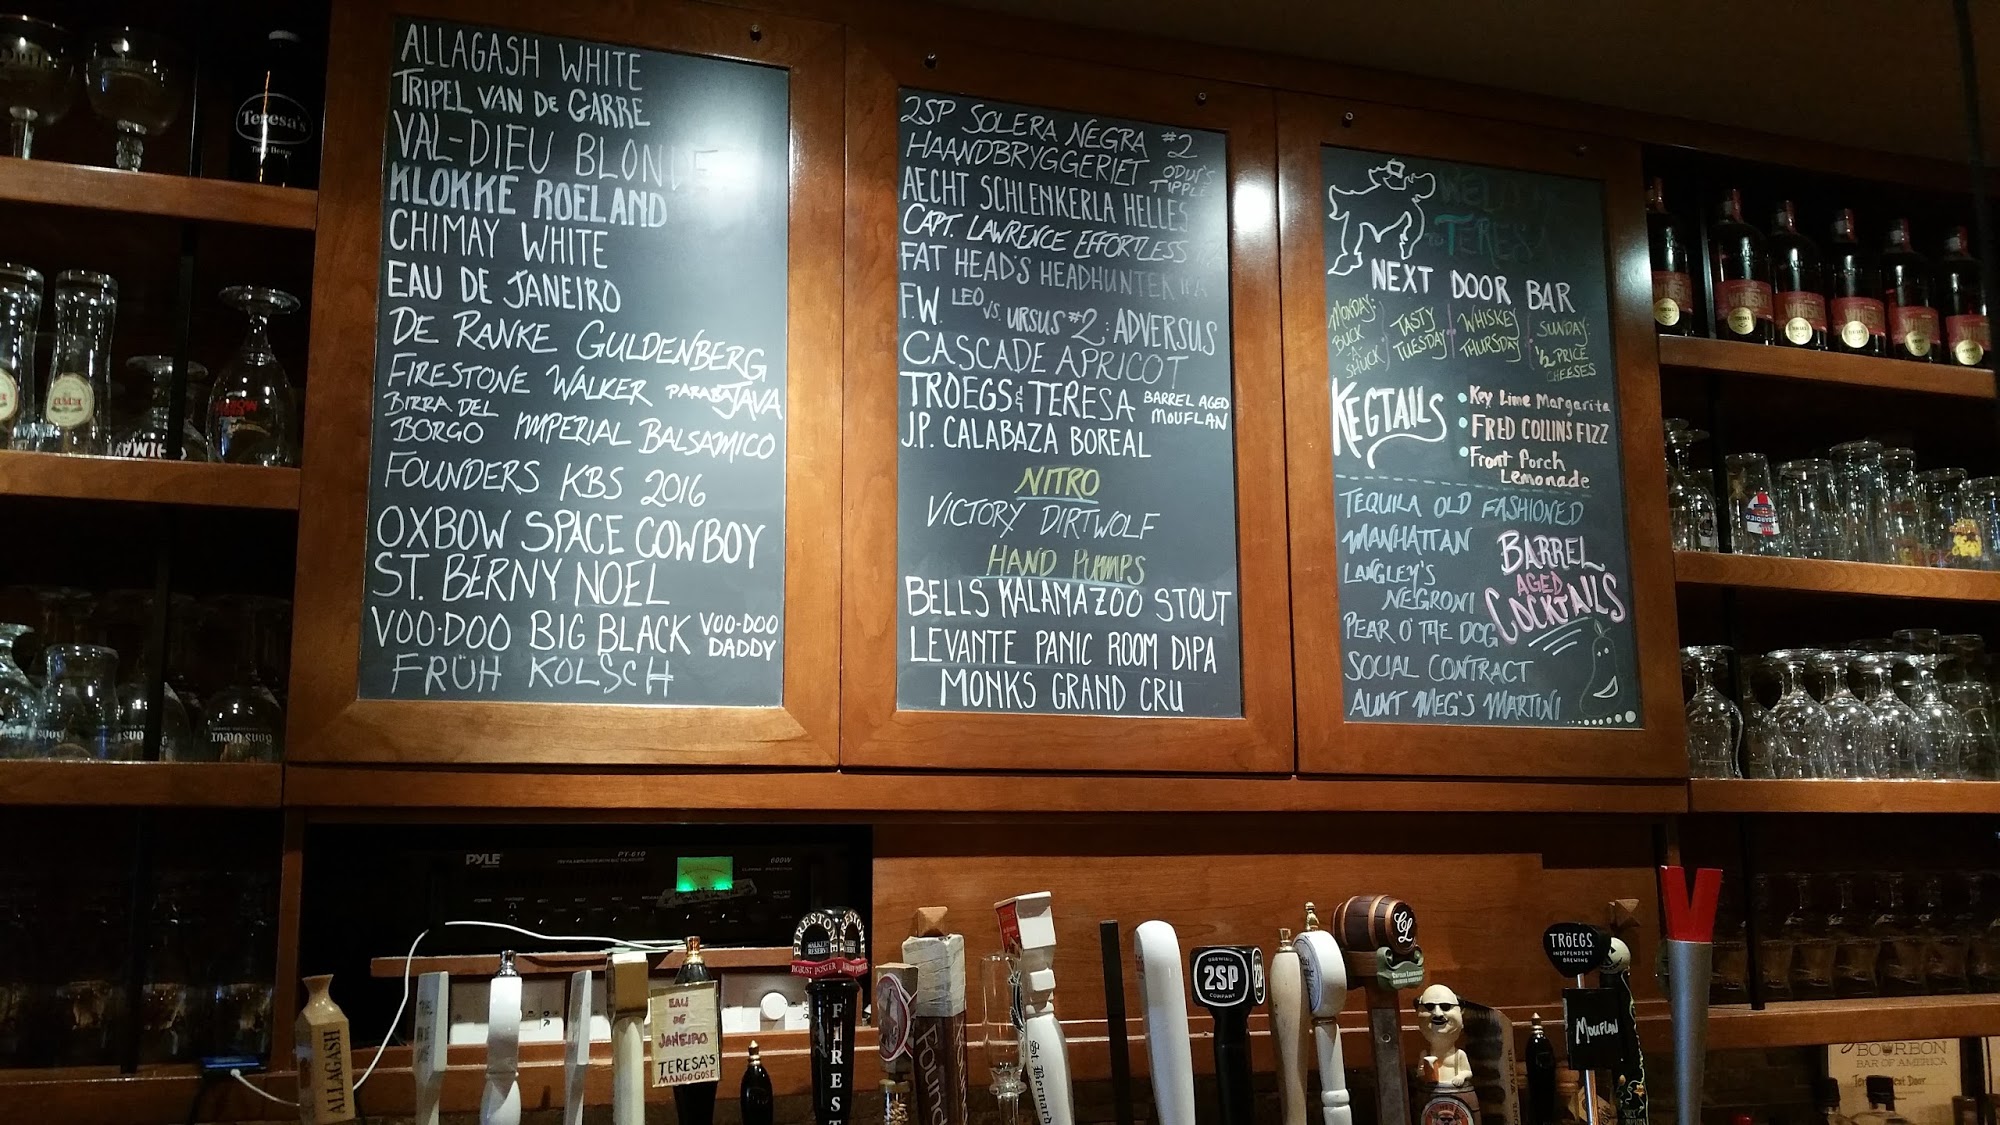 ALLAGASH WHITE
TRIPEL VAN DE GARRE
VAL-DIEU BLONDE
KLOKKE ROELAND
CHIMAY WHITE
EAU DE JANEIRO
DE RANKE GULDENBERG
FIRESTONE WALKER PARABAJAVA
BIRRA DEL
BORGO IMPERIAL BALSAMICO
FOUNDERS KBS 2016
OXBOW SPACE COWBOY
ST. BERNY NOEL
VOO-DOO BIG BLACK VOO-DOO
DADDY
FRÜH KOLSCH
2SP SOLERA NEGRA #2
HAANDBRYGGERIET ODIN'S
TIPPLE
AECHT SCHLENKERLA HELLES
CAPT. LAWRENCE EFFORTLESS
FAT HEAD'S HEADHUNTER IPA
F.W. LEO VS. URSUS #2: ADVERSUS
CASCADE APRICOT
TROEGS & TERESA BARREL AGED
MOUFLAN
J.P. CALABAZA BOREAL
NITRO
VICTORY DIRTWOLF
HAND PUMPS
BELLS KALAMAZOO STOUT
LEVANTE PANIC ROOM DIPA
MONKS GRAND CRU
WELCOME
TO TERESA
NEXT DOOR BAR
MONDAY:
BUCK
A
SHUCK
TASTY
TUESDAY
WHISKEY
THURSDAY
SUNDAY:
1/2 PRICE
CHEESES
KEGTAILS
Key Lime Margarita
FRED COLLINS FIZZ
Front Porch
Lemonade
TEQUILA OLD FASHIONED
MANHATTAN
LANGLEY'S
NEGRONI
PEAR O' THE DOG
SOCIAL CONTRACT
AUNT MEG'S MARTINI
BARREL
AGED
COCKTAILS
Teresa's
PYLE
PT-610
600W
ALLAGASH
EAU
DE
JANEIRO
TERESA'S
MANGO GOSE
FIRESTONE
ROBUST PORTER
FIREST
Found
St. Bernard
BREWING
2SP
COMPANY
CL
TRÖEGS
INDEPENDENT
BREWING
MOUFLAN
BOURBON
BAR OF AMERICA